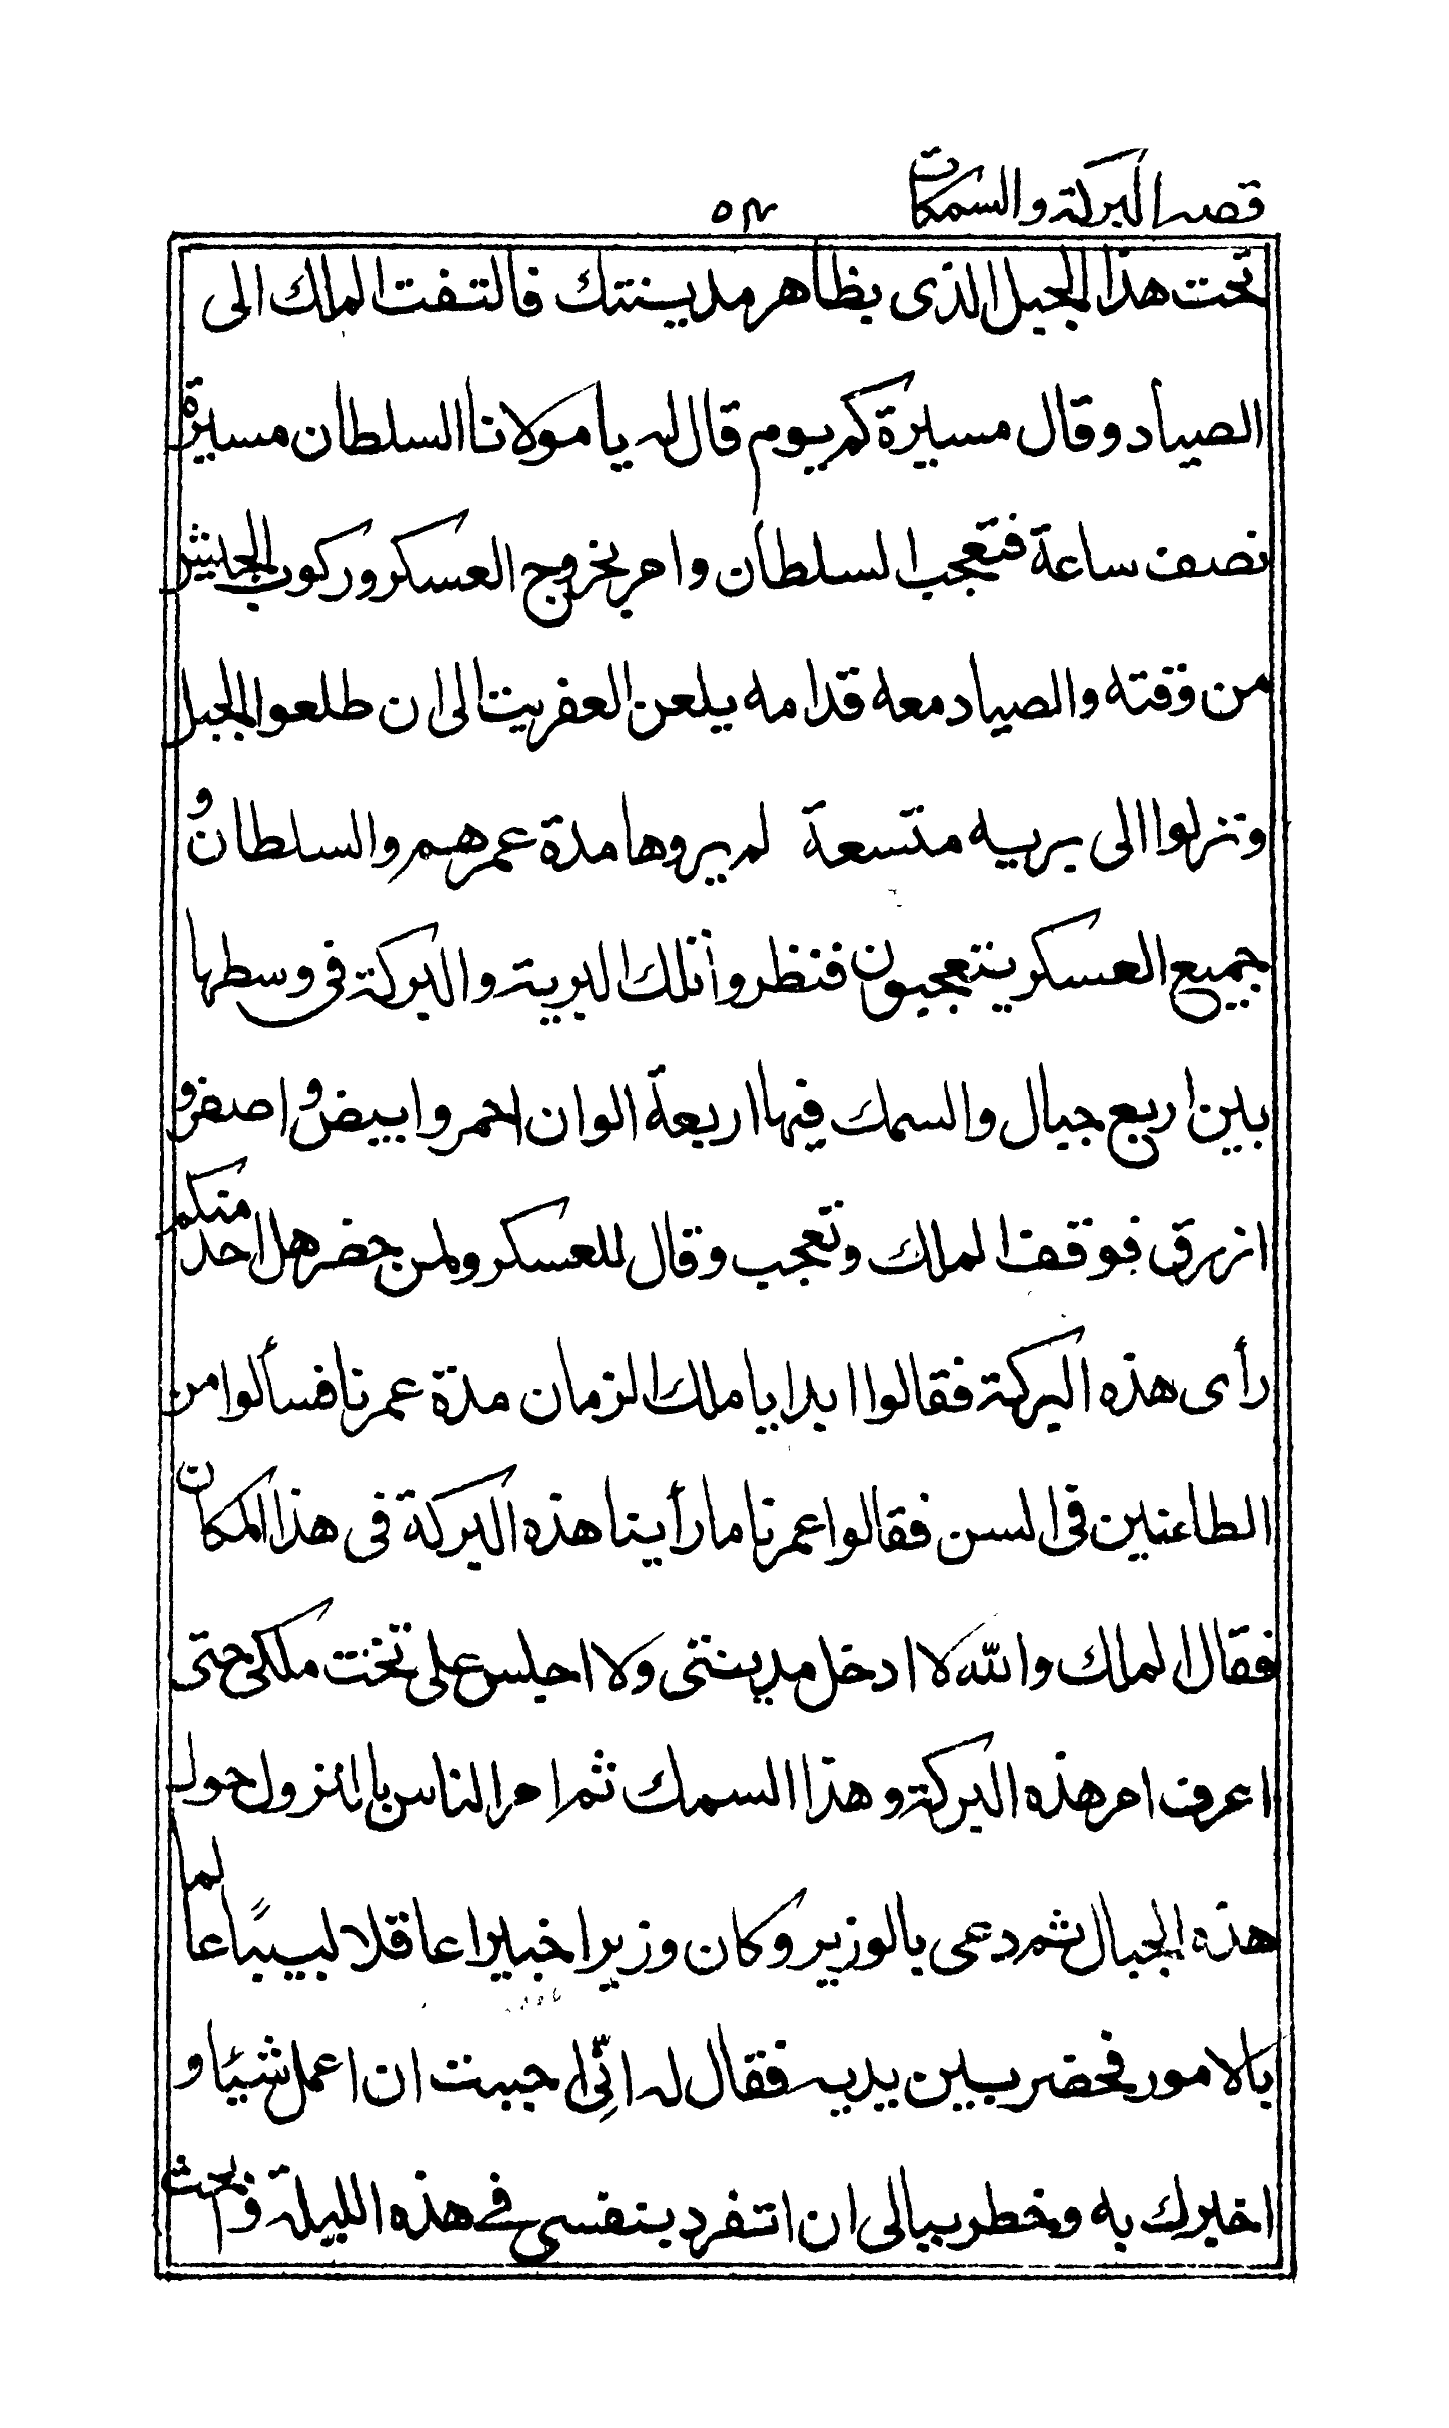 قصه البركة والسمكات ٥٣
تحت هذا الجبل الذى بظاهر مدينتك فالتفت الملك الى
الصياد وقال مسيرة كم يوم قال له يا مولانا السلطان مسيرة
نصف ساعة فتعجب السلطان وامر بخروج العسكر وركوب الجيش
من وقته والصياد معه قدامه يلعن العفريت الى ان طلعوا الجبل
ونزلوا الى بريه متسعة لم يروها مدة عمرهم والسلطان و
جميع العسكر يتعجبون فنظروا تلك البرية والبركة فى وسطها
بين اربع جبال والسمك فيها اربعة الوان احمر وابيض واصفر و
ازرق فوقف الملك وتعجب وقال للعسكر ولمن حضر هل احد منكم
رأى هذه البركة فقالوا ابدا يا ملك الزمان مدة عمرنا فسألوا من
الطاعنين فى السن فقالوا عمرنا ما رأينا هذه البركة فى هذا المكان
فقال الملك والله لا ادخل مدينتى ولا اجلس على تخت ملكى حتى
اعرف امر هذه البركة وهذا السمك ثم امر الناس بالنزول حول
هذه الجبال ثم دعى بالوزير وكان وزيرا خبيرا عاقلا لبيبًا عالما
بالامور فحضر بين يديه فقال له انّى احببت ان اعمل شيئا و
اخبرك به وخطر ببالى ان اتفرد بنفسى فى هذه الليلة وابحث